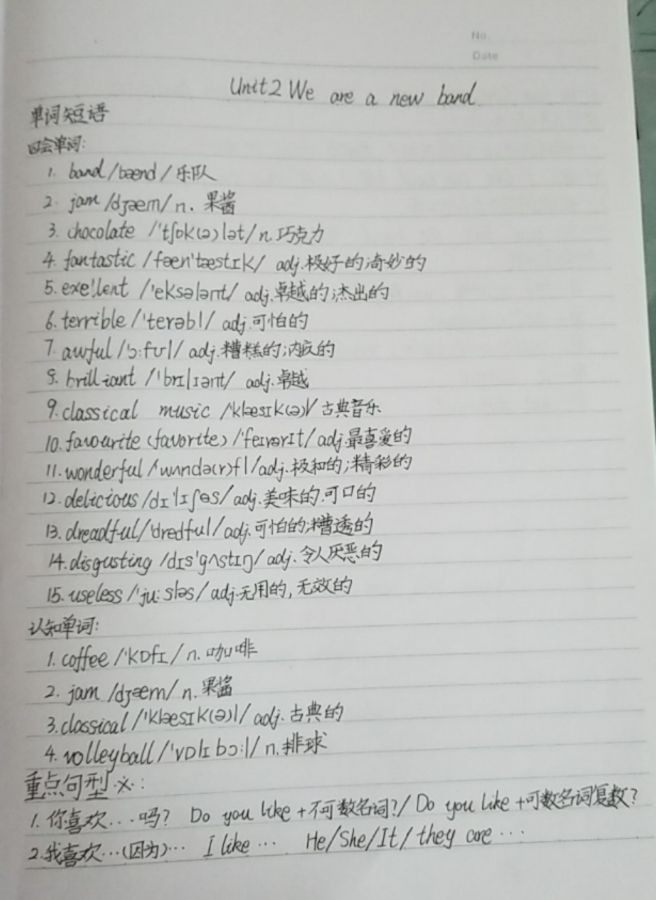 No.
Date
Unit2 We are a new band
单词短语
四会单词:
1. band /bænd/ 乐队
2. jam /dʒæm/ n. 果酱
3. chocolate /'tʃɒk(ə)lət/ n. 巧克力
4. fantastic /fæn'tæstɪk/ adj. 极好的;奇妙的
5. exellent /'eksələnt/ adj. 卓越的;杰出的
6. terrible /'terəbl/ adj. 可怕的
7. awful /ɔ:fʊl/ adj. 糟糕的;
8. brilliant /'brɪlɪənt/ adj. 卓越
9. classical music /'klæsɪk(ə)l/ 古典音乐
10. favourite (favorite) /'feɪvərɪt/ adj. 最喜爱的
11. wonderful /'wʌndə(r)fl/ adj. 极和的;精彩的
12. delicious /dɪ'lɪʃəs/ adj. 美味的.可口的
13. dreadful /'dredful/ adj. 可怕的;糟透的
14. disgusting /dɪs'gʌstɪŋ/ adj. 令人厌恶的
15. useless /'ju:sləs/ adj. 无用的,无效的
认知单词:
1. coffee /'kɒfɪ/ n. 咖啡
2. jam /dʒæm/ n. 果酱
3. classical /'klæsɪk(ə)l/ adj. 古典的
4. volleyball /'vɒlɪbɔ:l/ n. 排球
重点句型※:
1. 你喜欢...吗? Do you like + 不可数名词?/ Do you like + 可数名词复数?
2. 我喜欢...(因为)... I like ... He/She/It/ they are ...